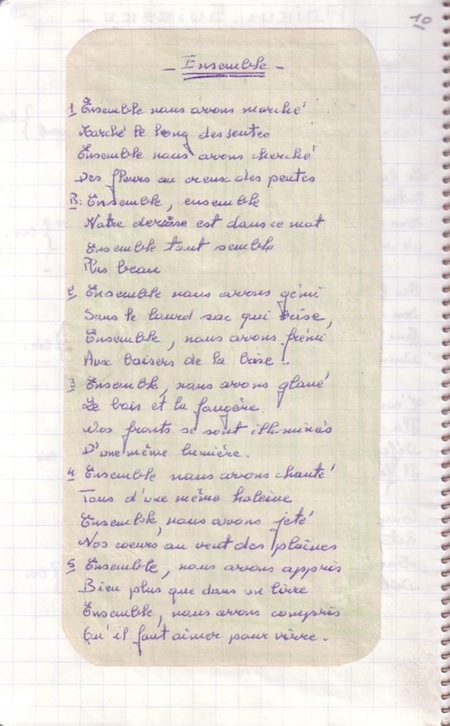 10
- Ensemble -
1 Ensemble nous avons marché
Marché le long des sentes
Ensemble nous avons cherché
Des fleurs au creux des pentes
R: Ensemble, ensemble
Notre devise est dans ce mot
Ensemble tout semble
Plus beau
2 Ensemble nous avons gémi
Sous le lourd sac qui brise,
Ensemble, nous avons frémi
Aux baisers de la bise..
3 Ensemble, nous avons glané
Le bois et la fougère.
Nos fronts se sont illuminés
D'une même lumière.
4 Ensemble nous avons chanté
Tous d'une même haleine
Ensemble, nous avons jeté
Nos coeurs au vent des plaines
5 Ensemble, nous avons appris
Bien plus que dans un livre
Ensemble, nous avons compris
Qu'il faut aimer pour vivre.